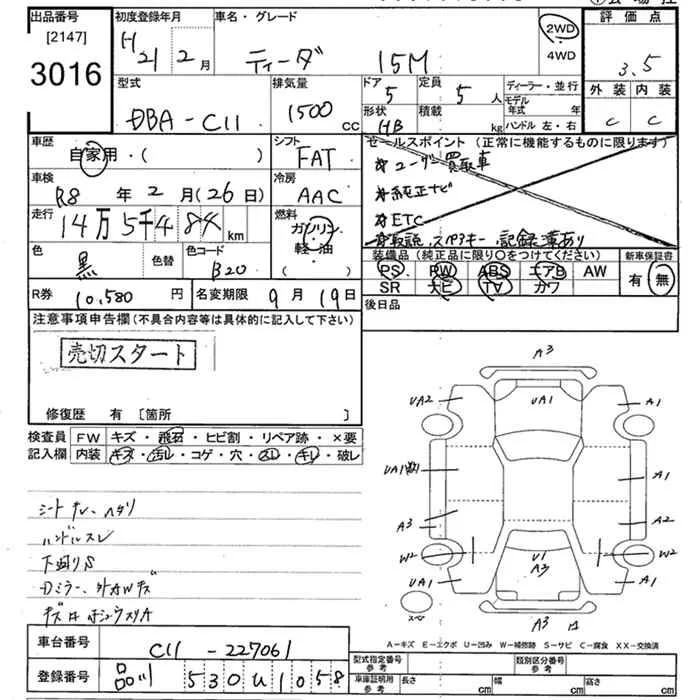 出品番号
[2147]
3016
初度登録年月
H21 2月
車名・グレード
ティーダ 15M
2WD
4WD
評価点
3.5
外装 内装
C C
型式
DBA-C11
排気量
1500 cc
ドア 5
定員 5 人
形状 HB
積載 kg
ディーラー・並行
モデル年式 年
ハンドル 左・右
車歴
自家用・( )
シフト
FAT
セールスポイント(正常に機能するものに限ります)
★ユーザー買取車
★純正ナビ
★ETC
★取説、スペアキー、記録簿あり
車検
R8 年 2 月(26日)
冷房
AAC
走行
14万5千484 km
燃料
ガソリン
軽・油
( )
色
黒
色替
色コード
B20
装備品(純正品に限り○をつけてください)
PS PW ABS エアB AW
SR ナビ TV カワ
新車保証書
有 無
R券 10,580 円
名変期限 9月19日
後日品
注意事項申告欄(不具合内容等は具体的に記入して下さい)
売切スタート
修復歴 有 [箇所 ]
検査員記入欄
FW キズ・飛石・ヒビ割・リペア跡・×要
内装 キズ・汚レ・コゲ・穴・スレ・キレ・破レ
ハンドルスレ
下廻りS
A3
UA2 UA1 A1
UA1 A1
A3 A2
W2 U1 A3 W2
UA1 A1
A3
A=キズ E=エクボ U=凹み W=補修跡 S=サビ C=腐食 XX=交換済
車台番号
C11-227061
登録番号
品川 530 U 1058
型式指定番号
参考
類別区分番号
参考
車庫証明用
参考
長さ cm
幅 cm
高さ cm